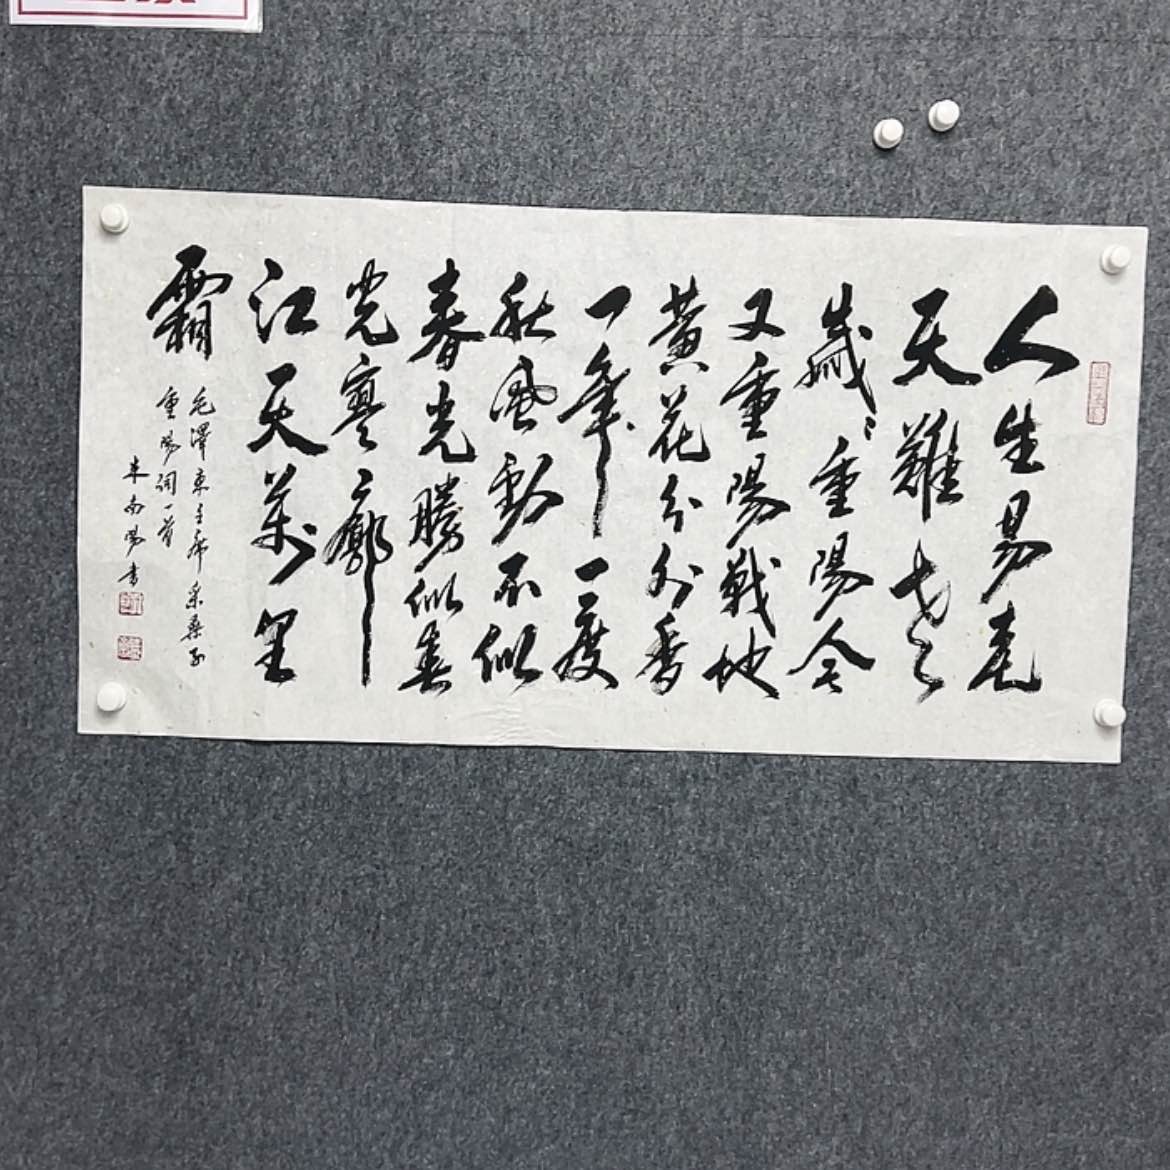 人生易老
天難老
歲〻重陽今
又重陽戰地
黄花分外香
一年一度
秋風勁不似
春光勝似春
光寥廓
江天萬里
霜
毛澤東主席采桑子
重陽詞一首
南陽書